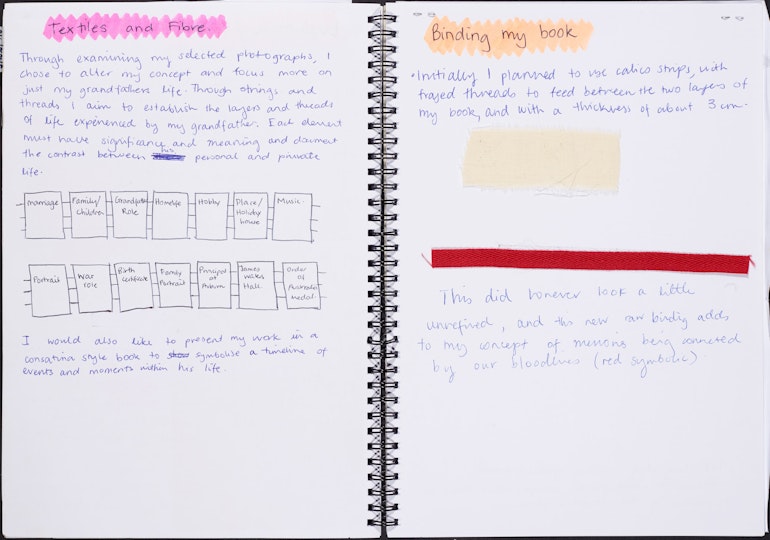 Textiles and Fibre.
Through examining my selected photographs, I
chose to alter my concept and focus more on
just my grandfathers life. Through strings and
threads I aim to establish the layers and threads
of life experienced by my grandfather. Each element
must have significance and meaning and document
the contrast between his personal and private
life.
Marriage
Family/
Children
Grandfather
Role
Homelife
Hobby
Place/
Holiday
house
Music
Portrait
War
role
Birth
certificate
Family
Portrait
Principal
at
James
Hall
Order
of
Australia
Medal
I would also like to present my work in a
consatina style book to show symbolise a timeline of
events and moments within his life.
Binding my book
• Initially I planned to use calico strips, with
frayed threads to feed between the two layers of
my book, and with a thickness of about 3 cm.
This did however look a little
unrefined, and this new binding adds
to my concept of being connected
by our bloodlines (red symbolic).